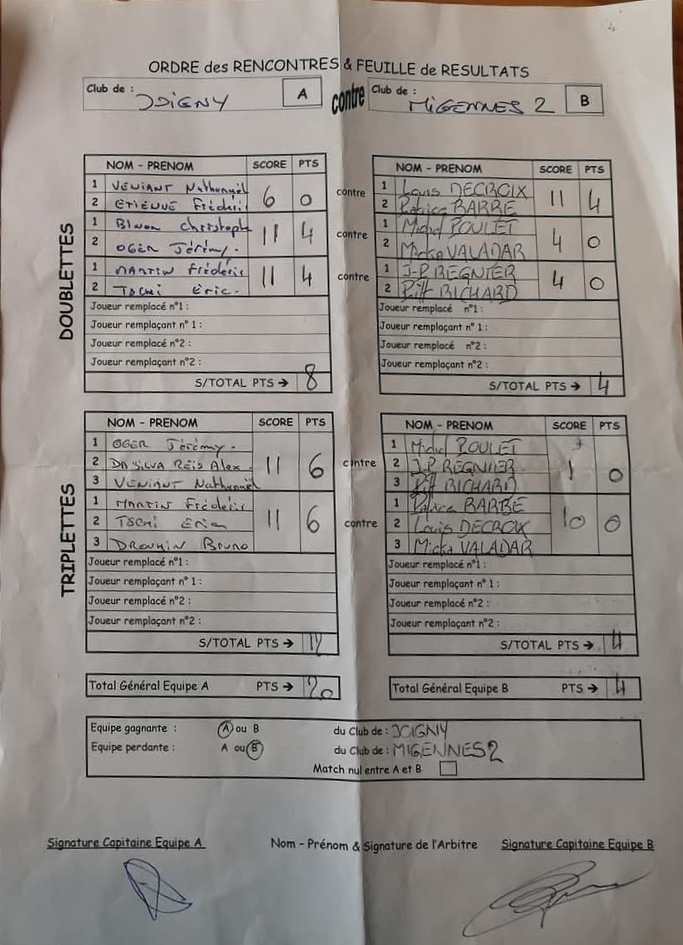 ORDRE des RENCONTRES & FEUILLE de RESULTATS
Club de : JOIGNY A contre Club de : MIGENNES 2 B
DOUBLETTES
NOM - PRENOM SCORE PTS NOM - PRENOM SCORE PTS
1 VENIANT Nathanaël 6 0 contre 1 Louis DECROIX 11 4
2 ETIENNE Frédéric 2 Patrice BARRE
1 BINON Christophe 11 4 contre 1 Michel POULET 4 0
2 OGER Jérémy. 2 Micka VALADAR
1 MARTIN Frédéric 11 4 contre 1 J-P REGNIER 4 0
2 TSCHI Eric. 2 Pitt RICHARD
Joueur remplacé n°1 : Joueur remplacé n°1 :
Joueur remplaçant n° 1 : Joueur remplaçant n° 1 :
Joueur remplacé n°2 : Joueur remplacé n°2 :
Joueur remplaçant n°2 : Joueur remplaçant n°2 :
S/TOTAL PTS → 8 S/TOTAL PTS → 4
TRIPLETTES
NOM - PRENOM SCORE PTS NOM - PRENOM SCORE PTS
1 OGER Jérémy. 11 6 contre 1 Michel POULET 1 0
2 DA SILVA REIS Alex. 2 J-P REGNIER
3 VENIANT Nathanaël 3 Pitt RICHARD
1 MARTIN Frédéric 11 6 contre 1 Patrice BARRE 10 0
2 TSCHI Eric 2 Louis DECROIX
3 DROUHIN Bruno 3 Micka VALADAR
Joueur remplacé n°1 : Joueur remplacé n°1 :
Joueur remplaçant n° 1 : Joueur remplaçant n° 1 :
Joueur remplacé n°2 : Joueur remplacé n°2 :
Joueur remplaçant n°2 : Joueur remplaçant n°2 :
S/TOTAL PTS → 12 S/TOTAL PTS → 4
Total Général Equipe A PTS → 20 Total Général Equipe B PTS → 4
Equipe gagnante : A ou B du Club de : JOIGNY
Equipe perdante : A ou B du Club de : MIGENNES 2
Match nul entre A et B
Signature Capitaine Equipe A Nom - Prénom & Signature de l'Arbitre Signature Capitaine Equipe B